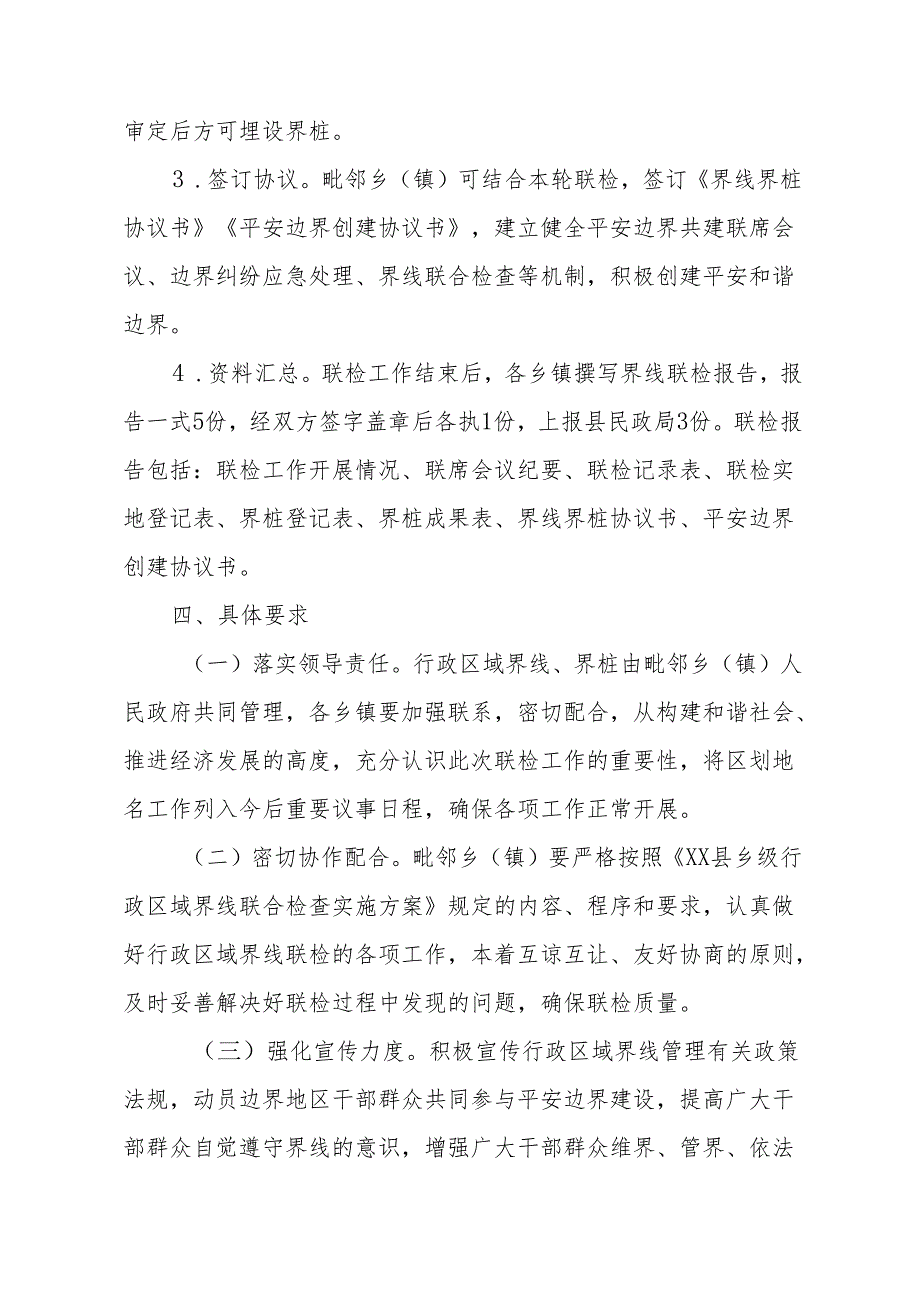 审定后方可埋设界桩。
3.签订协议。毗邻乡（镇）可结合本轮联检，签订《界线界桩
协议书》《平安边界创建协议书》，建立健全平安边界共建联席会
议、边界纠纷应急处理、界线联合检查等机制，积极创建平安和谐
边界。
4.资料汇总。联检工作结束后，各乡镇撰写界线联检报告，报
告一式5份，经双方签字盖章后各执1份，上报县民政局3份。联检报
告包括：联检工作开展情况、联席会议纪要、联检记录表、联检实
地登记表、界桩登记表、界桩成果表、界线界桩协议书、平安边界
创建协议书。
四、具体要求
（一）落实领导责任。行政区域界线、界桩由毗邻乡（镇）人
民政府共同管理，各乡镇要加强联系，密切配合，从构建和谐社会、
推进经济发展的高度，充分认识此次联检工作的重要性，将区划地
名工作列入今后重要议事日程，确保各项工作正常开展。
（二）密切协作配合。毗邻乡（镇）要严格按照《XX县乡级行
政区域界线联合检查实施方案》规定的内容、程序和要求，认真做
好行政区域界线联检的各项工作，本着互谅互让、友好协商的原则，
及时妥善解决好联检过程中发现的问题，确保联检质量。
（三）强化宣传力度。积极宣传行政区域界线管理有关政策
法规，动员边界地区干部群众共同参与平安边界建设，提高广大干
部群众自觉遵守界线的意识，增强广大干部群众维界、管界、依法